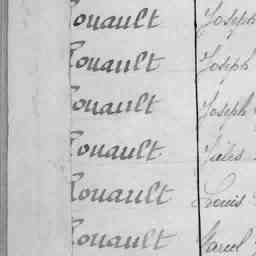 Rouault Joseph
Rouault Joseph
Rouault Joseph
Rouault Jules
Rouault Louis
Rouault Marcel